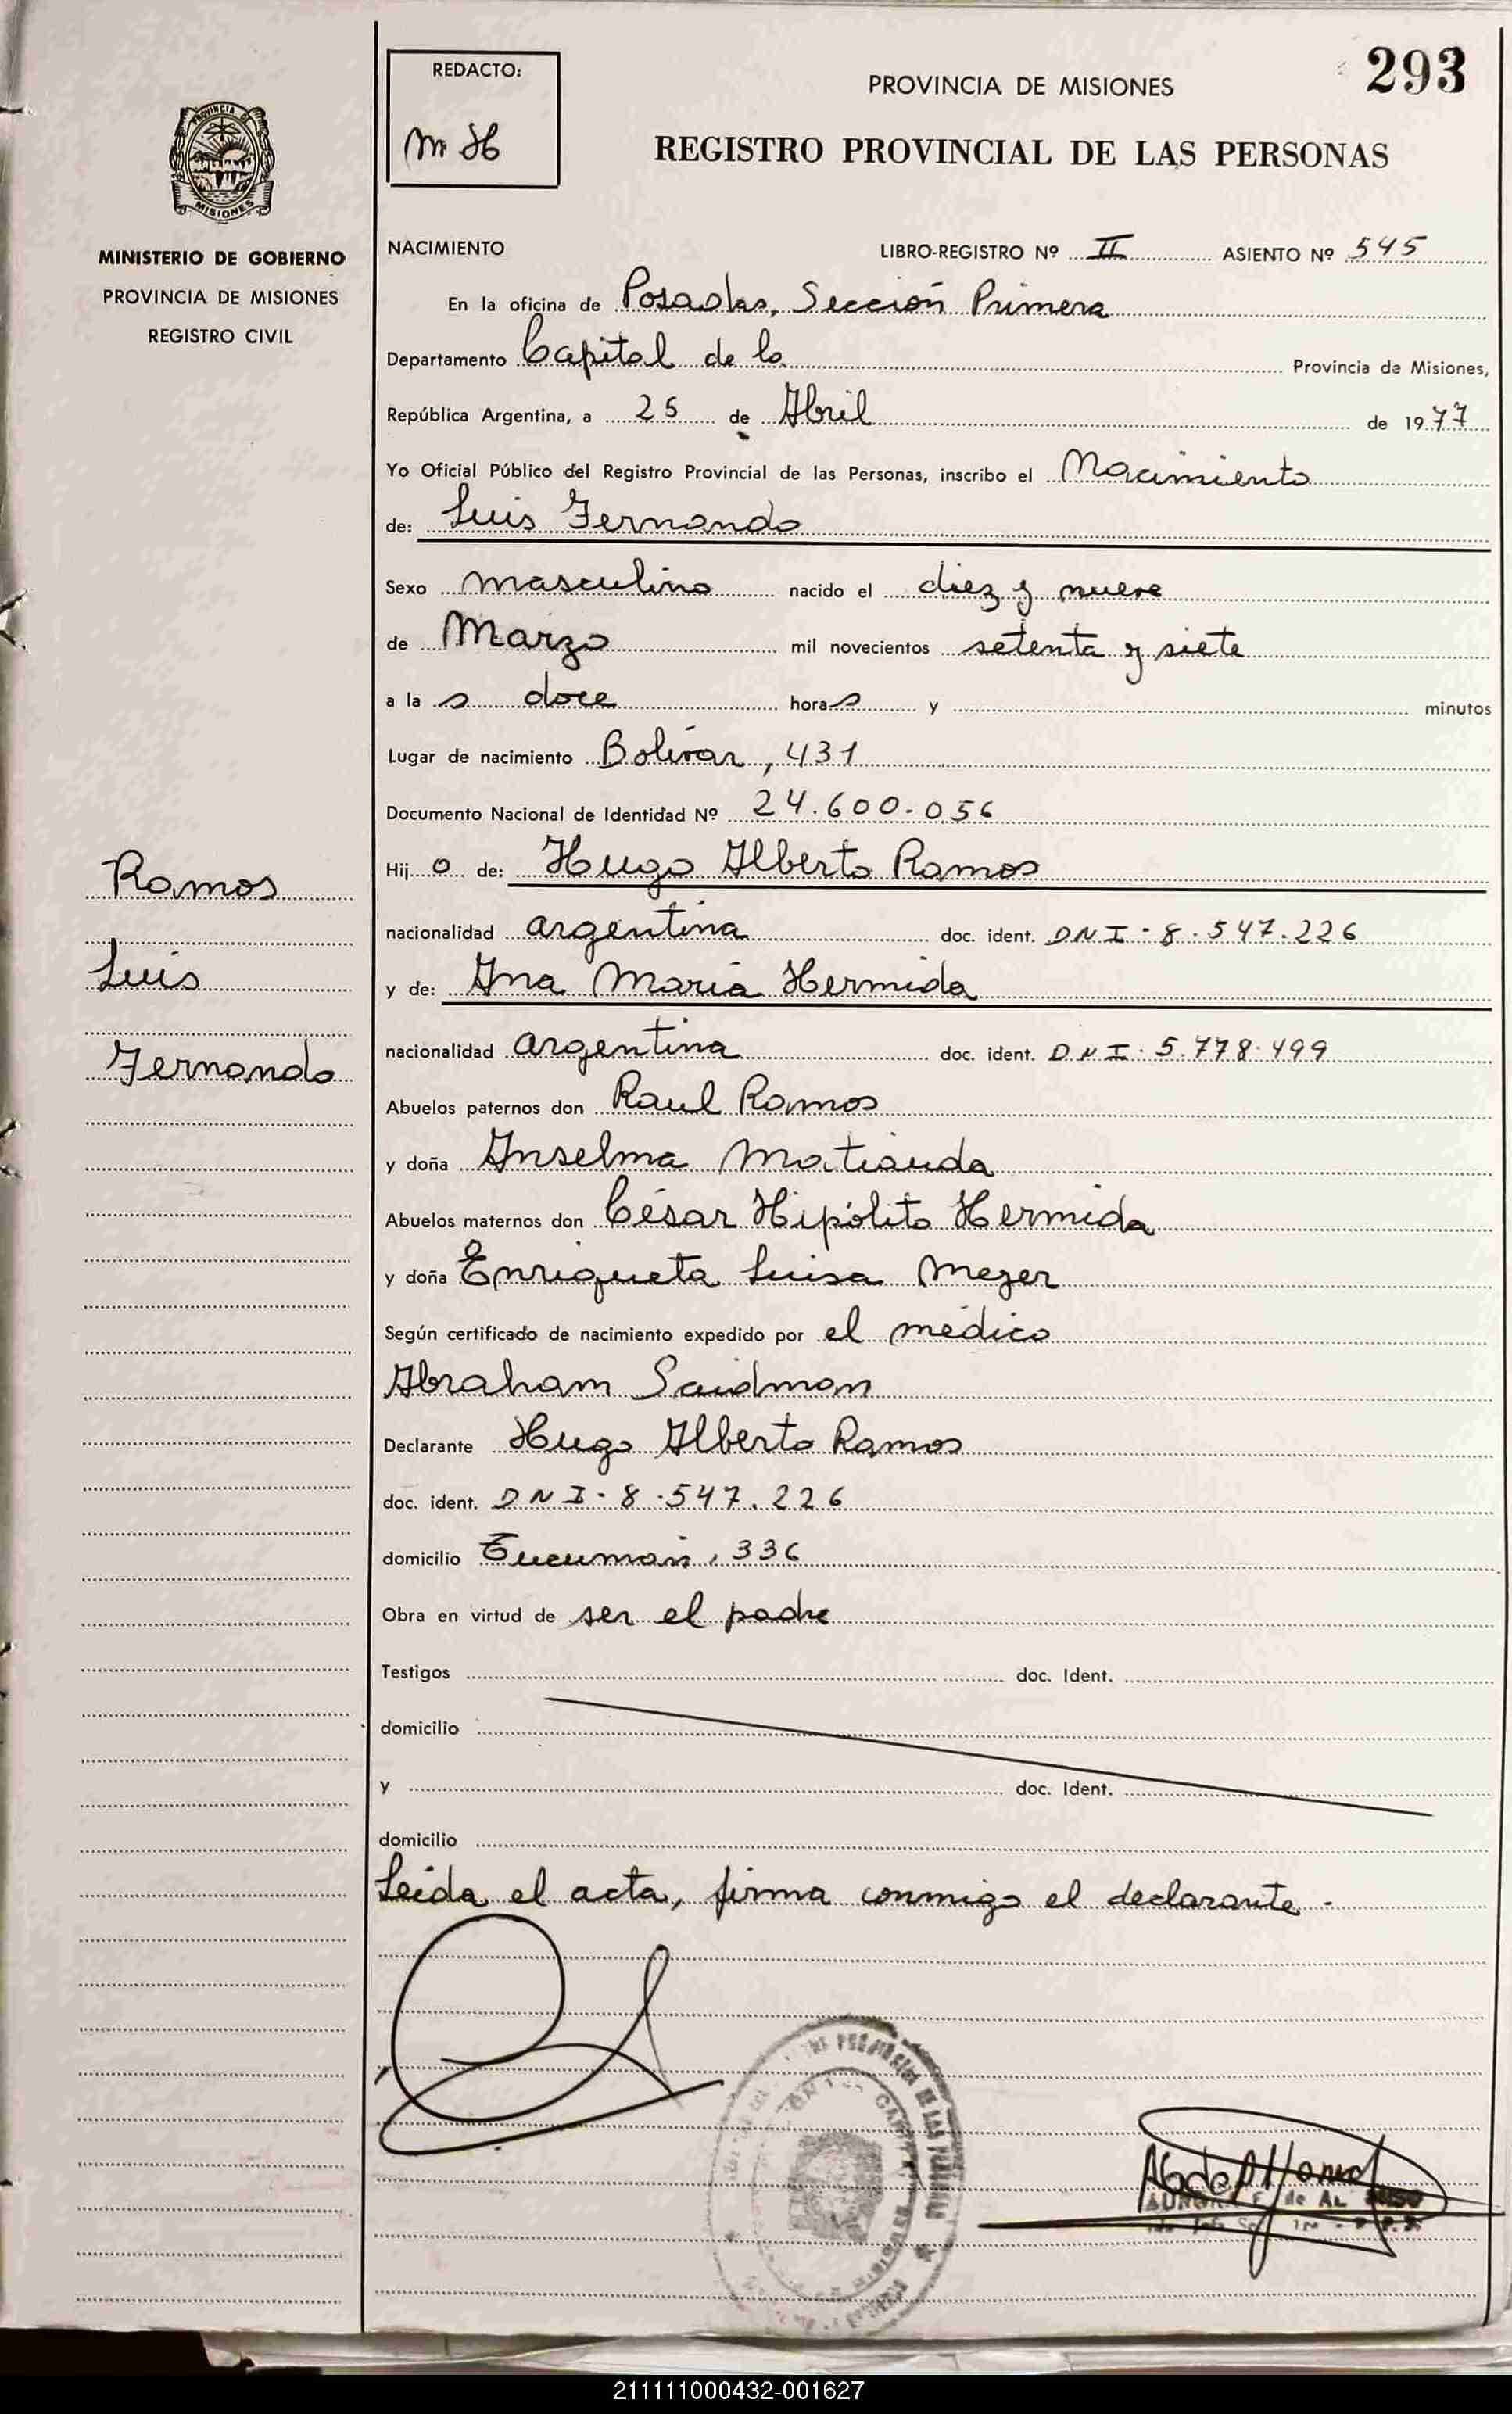 REDACTO:
m H
293
PROVINCIA DE MISIONES
REGISTRO PROVINCIAL DE LAS PERSONAS
PROVINCIA DE
MISIONES
MINISTERIO DE GOBIERNO
PROVINCIA DE MISIONES
REGISTRO CIVIL
NACIMIENTO LIBRO-REGISTRO Nº II ASIENTO Nº 545
En la oficina de Posadas, Sección Primera
Departamento Capital de la Provincia de Misiones,
República Argentina, a 25 de Abril de 1977
Yo Oficial Público del Registro Provincial de las Personas, inscribo el Nacimiento
de: Luis Fernando
Sexo masculino nacido el diez y nueve
de Marzo mil novecientos setenta y siete
a la s doce horas y minutos
Lugar de nacimiento Bolívar, 431
Documento Nacional de Identidad Nº 24.600.056
Hij o de: Hugo Alberto Ramos
nacionalidad argentina doc. ident. DNI. 8.547.226
y de: Ana María Hermida
nacionalidad argentina doc. ident. DNI. 5.778.499
Abuelos paternos don Raul Ramos
y doña Anselma
Abuelos maternos don César Hipólito Hermida
y doña Enriqueta Luisa Mezer
Según certificado de nacimiento expedido por el médico
Abraham Saidman
Declarante Hugo Alberto Ramos
doc. ident. DNI. 8.547.226
domicilio Tucumán, 336
Obra en virtud de ser el padre
Testigos doc. Ident.
domicilio
y doc. Ident.
domicilio
Leida el acta, firma conmigo el declarante.
Ramos
Luis
Fernando
211111000432-001627